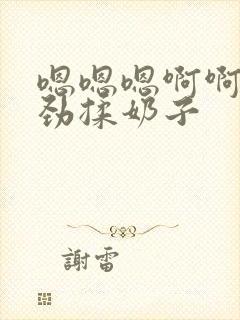 嗯嗯嗯啊啊
劲揉奶子
謝雷